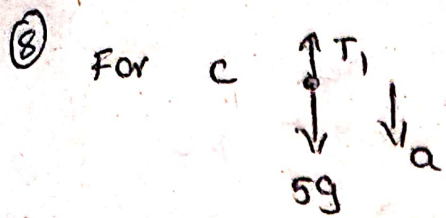 ⑧ For C T₁
a
5g